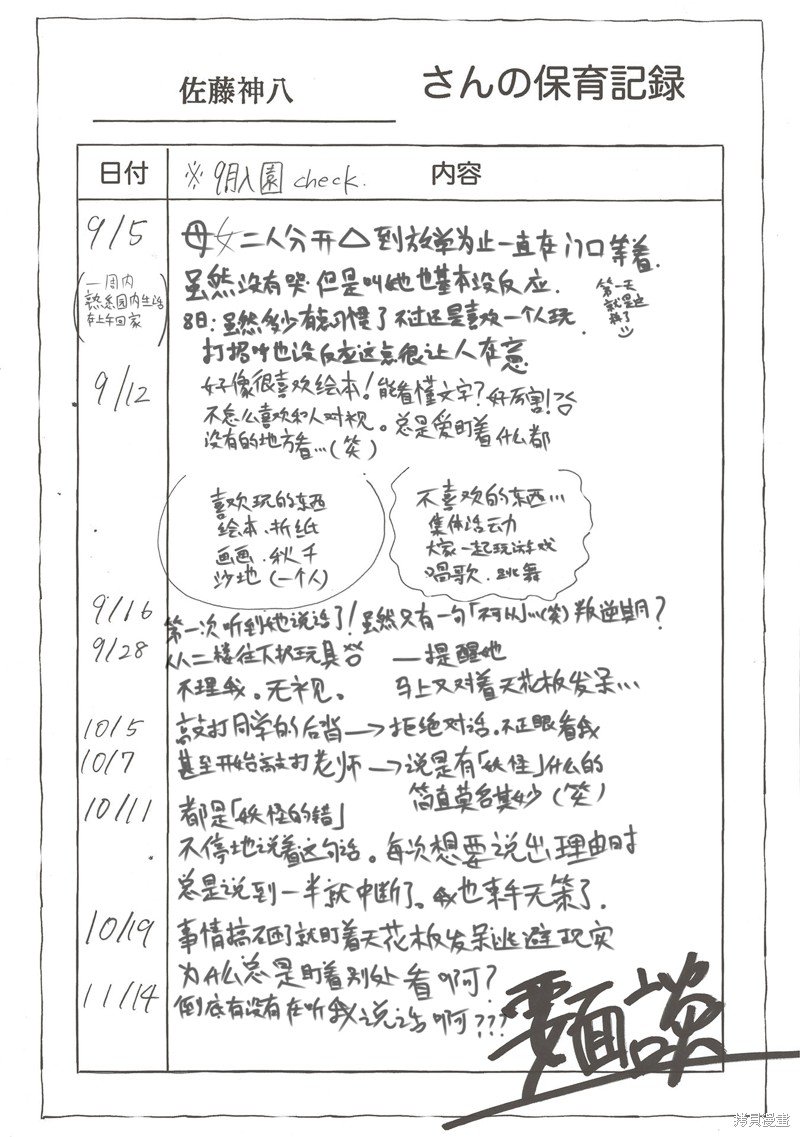 佐藤神八 さんの保育記録
日付 ※9月入園 check. 内容
9/5 母女二人分开△到放学为止一直在门口等着.
(一周内
熟悉园内生活
在上午回家)
虽然没有哭.但是叫她也基本没反应.
第一天
就是这
样了
8日:虽然多少有点习惯了不过还是喜欢一个人玩.
打招呼也没反应这点很让人在意
9/12 好像很喜欢绘本!能看懂文字?好厉害!
不怎么喜欢和人对视。总是爱盯着什么都
没有的地方看…(笑)
喜欢玩的东西
绘本、折纸
画画.秋千
沙地(一个人)
不喜欢的东西…
集体活动
大家一起玩游戏
唱歌.跳舞
9/16 第一次听到她说话了!虽然只有一句「不可以」…(笑)叛逆期?
9/28 从二楼往下扔玩具 一提醒她
不理我。无视。 马上又对着天花板发呆…
10/5 敲打同学的后背→拒绝对话.不正眼看我
10/7 甚至开始敲打老师→说是有「妖怪」什么的
简直莫名其妙(笑)
10/11 都是「妖怪的错」
不停地说着这句话。每次想要说出理由时
总是说到一半就中断了。我也束手无策了.
10/19 事情搞砸了就盯着天花板发呆逃避现实
为什么总是盯着别处看啊?
11/14 到底有没有在听我说话啊???
要面談
拷貝漫畫